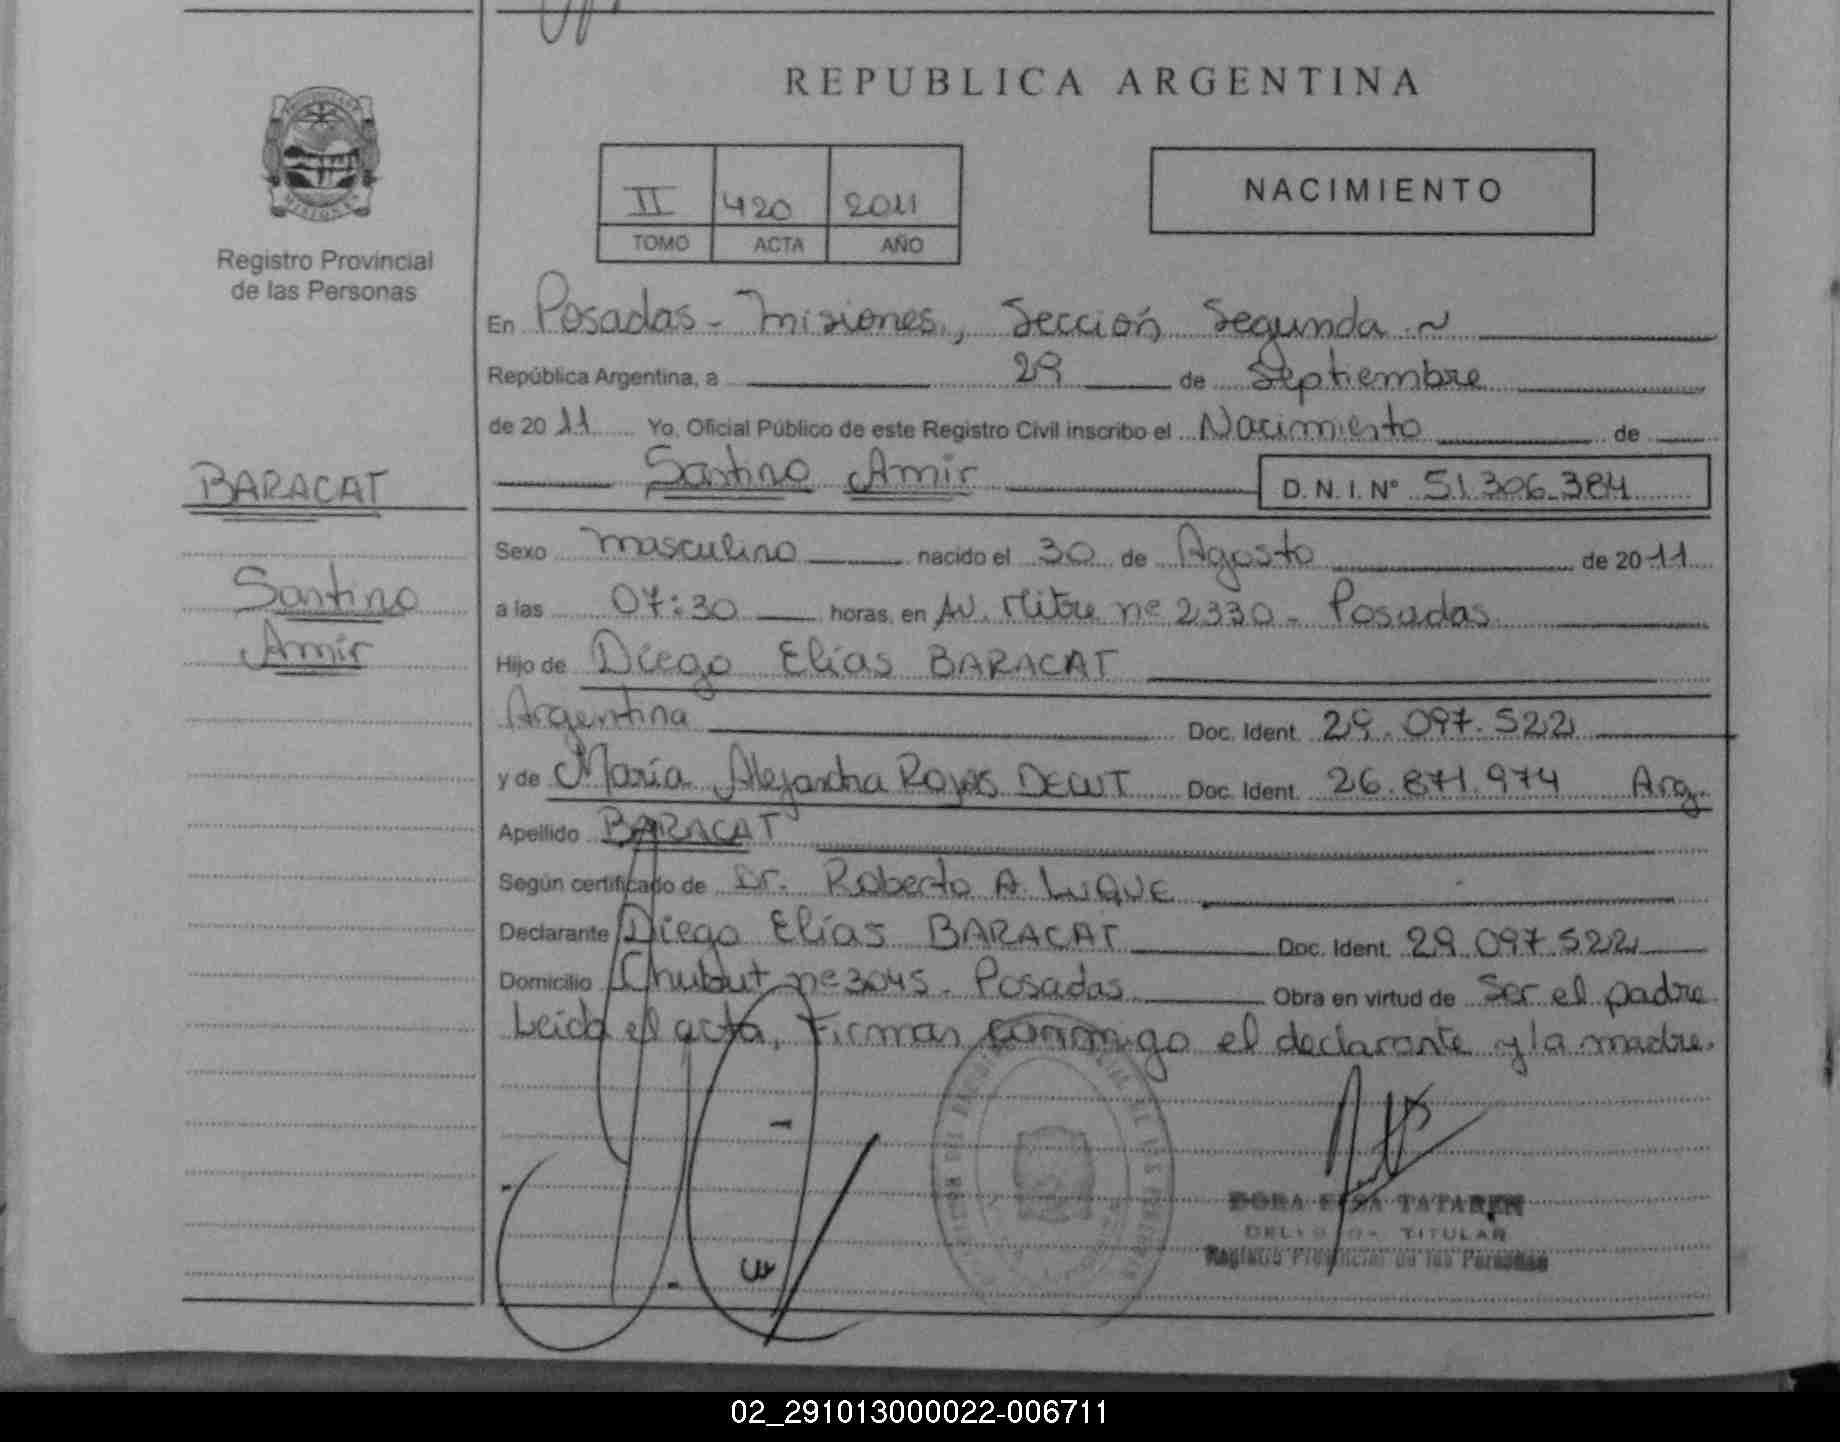 REPUBLICA ARGENTINA
II 420 2011
TOMO ACTA AÑO
NACIMIENTO
Registro Provincial
de las Personas
BARACAT
Santino
Amir
En Posadas - Misiones, Sección Segunda
República Argentina, a 29 de Septiembre
de 2011 Yo, Oficial Público de este Registro Civil inscribo el Nacimiento de
Santino Amir D.N.I. Nº 51.306.384
Sexo masculino nacido el 30 de Agosto de 2011
a las 07:30 horas, en Av. Mitre nº 2330 - Posadas
Hijo de Diego Elías BARACAT
Argentina Doc. Ident. 29.097.522
y de María Alejandra Rojas Doc. Ident. 26.871.974 Arg.
Apellido BARACAT
Según certificado de Dr. Roberto A. LUQUE
Declarante Diego Elías BARACAT Doc. Ident. 29.097.522
Domicilio Chubut nº 3045 - Posadas Obra en virtud de ser el padre
Leida el acta, Firman conmigo el declarante y la madre.
DORA TATAREN
TITULAR
Registro Provincial de las Personas
02_291013000022-006711